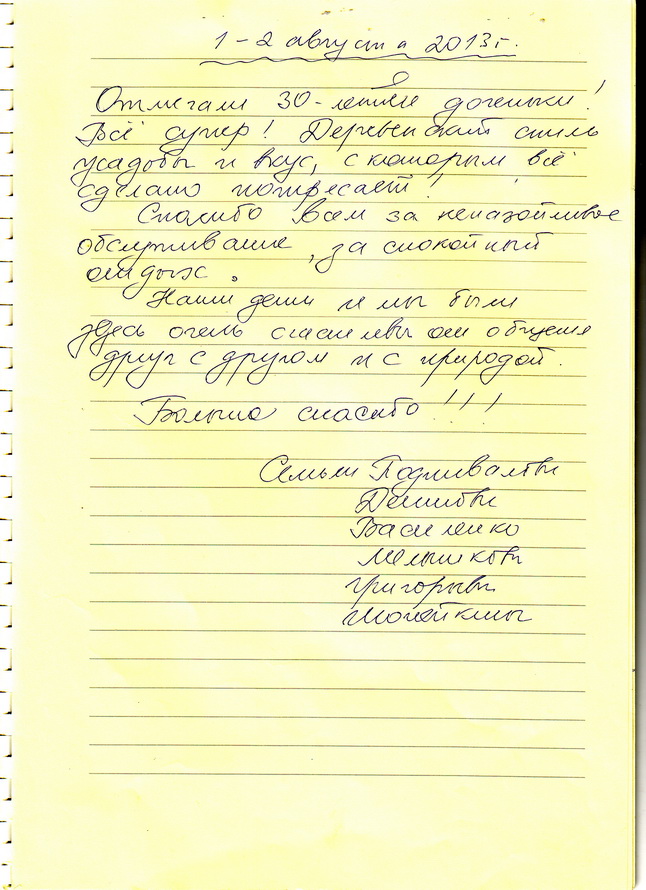 1-2 августа 2013г.
Отмечали 30-летие доченьки!
Всё супер! Деревенский стиль
усадьбы и вкус, с которым всё
сделано потрясает!
Спасибо Вам за неназойливое
обслуживание, за спокойный
отдых.
Наши дети и мы были
здесь очень счастливы от общения
друг с другом и с природой.
Большое спасибо!!!
Семьи
Василенко
Мельниковы
Григорьевы